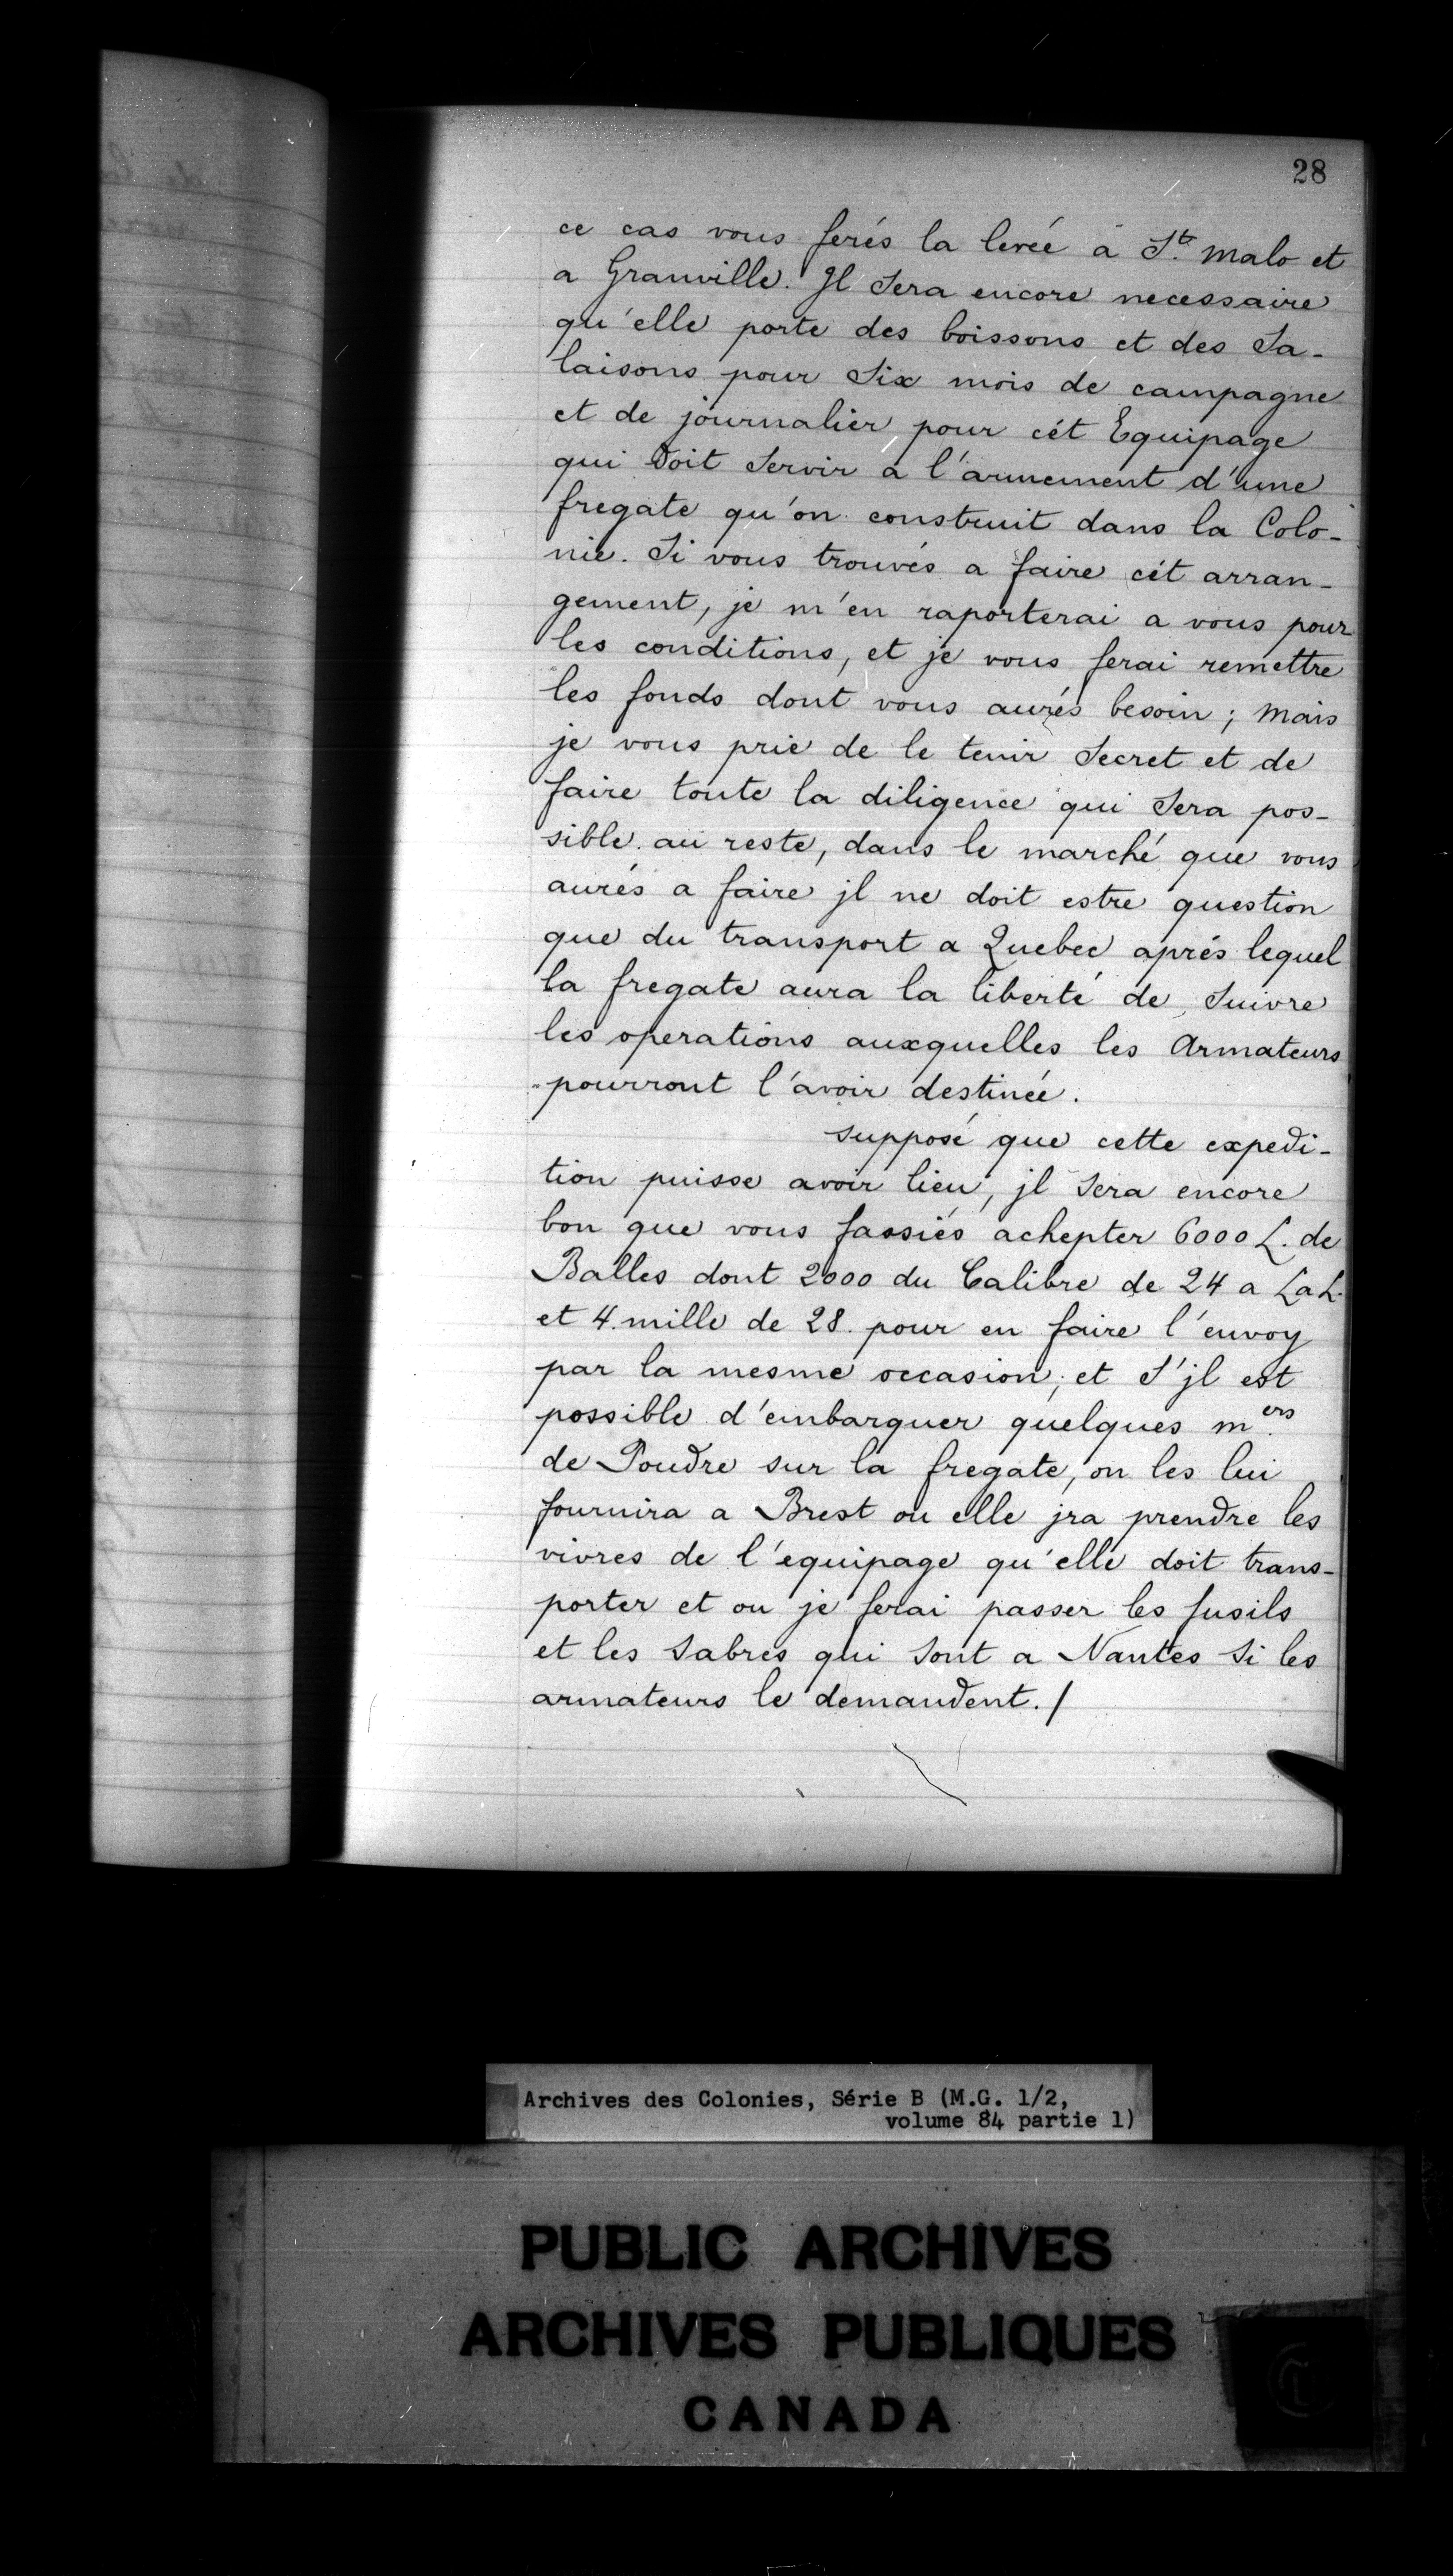 28
ce cas vous ferés la levée à S.t Malo et
a Granville. Jl Sera encore necessaire
qu'elle porte des boissons et des Sa-
laisons pour Six mois de campagne
et de journalier pour cét Equipage
qui doit Servir a l'armement d'une
fregate qu'on construit dans la Colo-
nie. Si vous trouvés a faire cét arran-
gement, je m'en raporterai a vous pour
les conditions, et je vous ferai remettre
les fonds dont vous aurés besoin; mais
je vous prie de le tenir Secret et de
faire toute la diligence qui Sera pos-
sible. au reste, dans le marché que vous
aurés a faire jl ne doit estre question
que du transport a Quebec aprés lequel
la fregate aura la liberté de Suivre
les operations auxquelles les Armateurs
pourront l'avoir destinée.
supposé que cette expedi-
tion puisse avoir lieu, jl Sera encore
bon que vous fassiés achepter 6000 L. de
Balles dont 2000 du Calibre de 24 a La L.
et 4. mille de 28. pour en faire l'envoy
par la mesme occasion; et S'jl est
possible d'embarquer quelques m.ers
de Poudre sur la fregate, on les lui
fournira a Brest ou elle jra prendre les
vivres de l'equipage qu'elle doit trans-
porter et ou je ferai passer les fusils
et les Sabres qui Sont a Nantes Si les
armateurs le demandent. /
Archives des Colonies, Série B (M.G. 1/2,
volume 84 partie 1)
PUBLIC ARCHIVES
ARCHIVES PUBLIQUES
CANADA